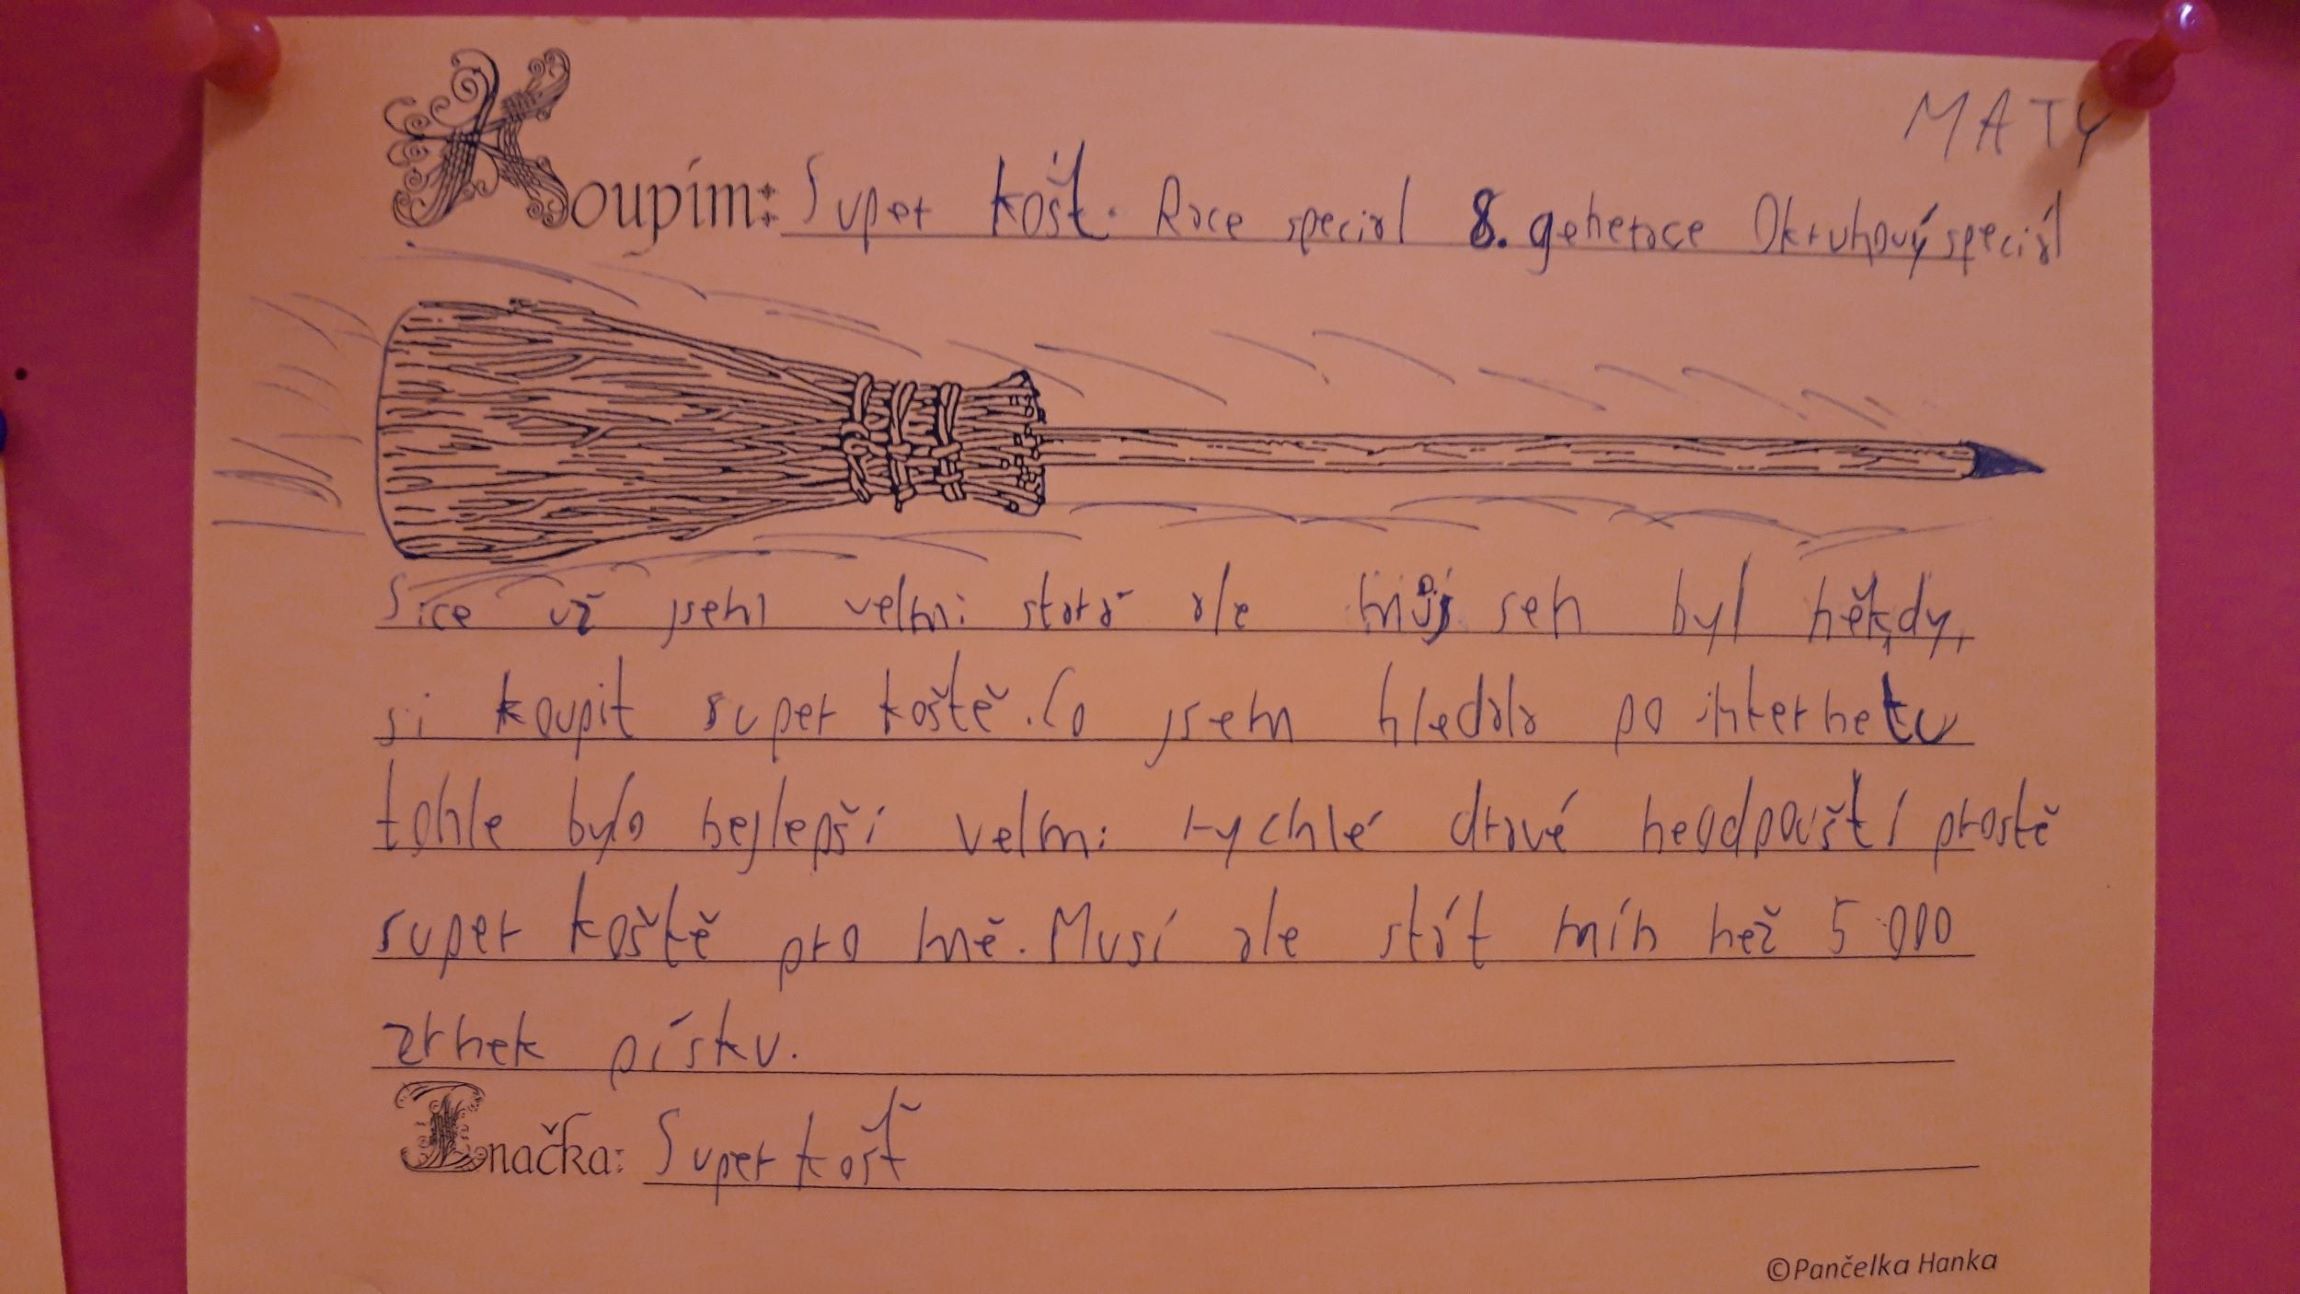 MATY
Koupím: Super košt. Race special 8. generace Okruhový speciál
Sice už jsem velmi stará ale můj sen byl někdy,
si koupit super koště. Co jsem hledala po internetu
tohle bylo nejlepší velmi rychlé dravé neodpouští prostě
super koště pro mě. Musí ale stát míň než 5 000
zrnek písku.
Značka: Super košť
©Pančelka Hanka